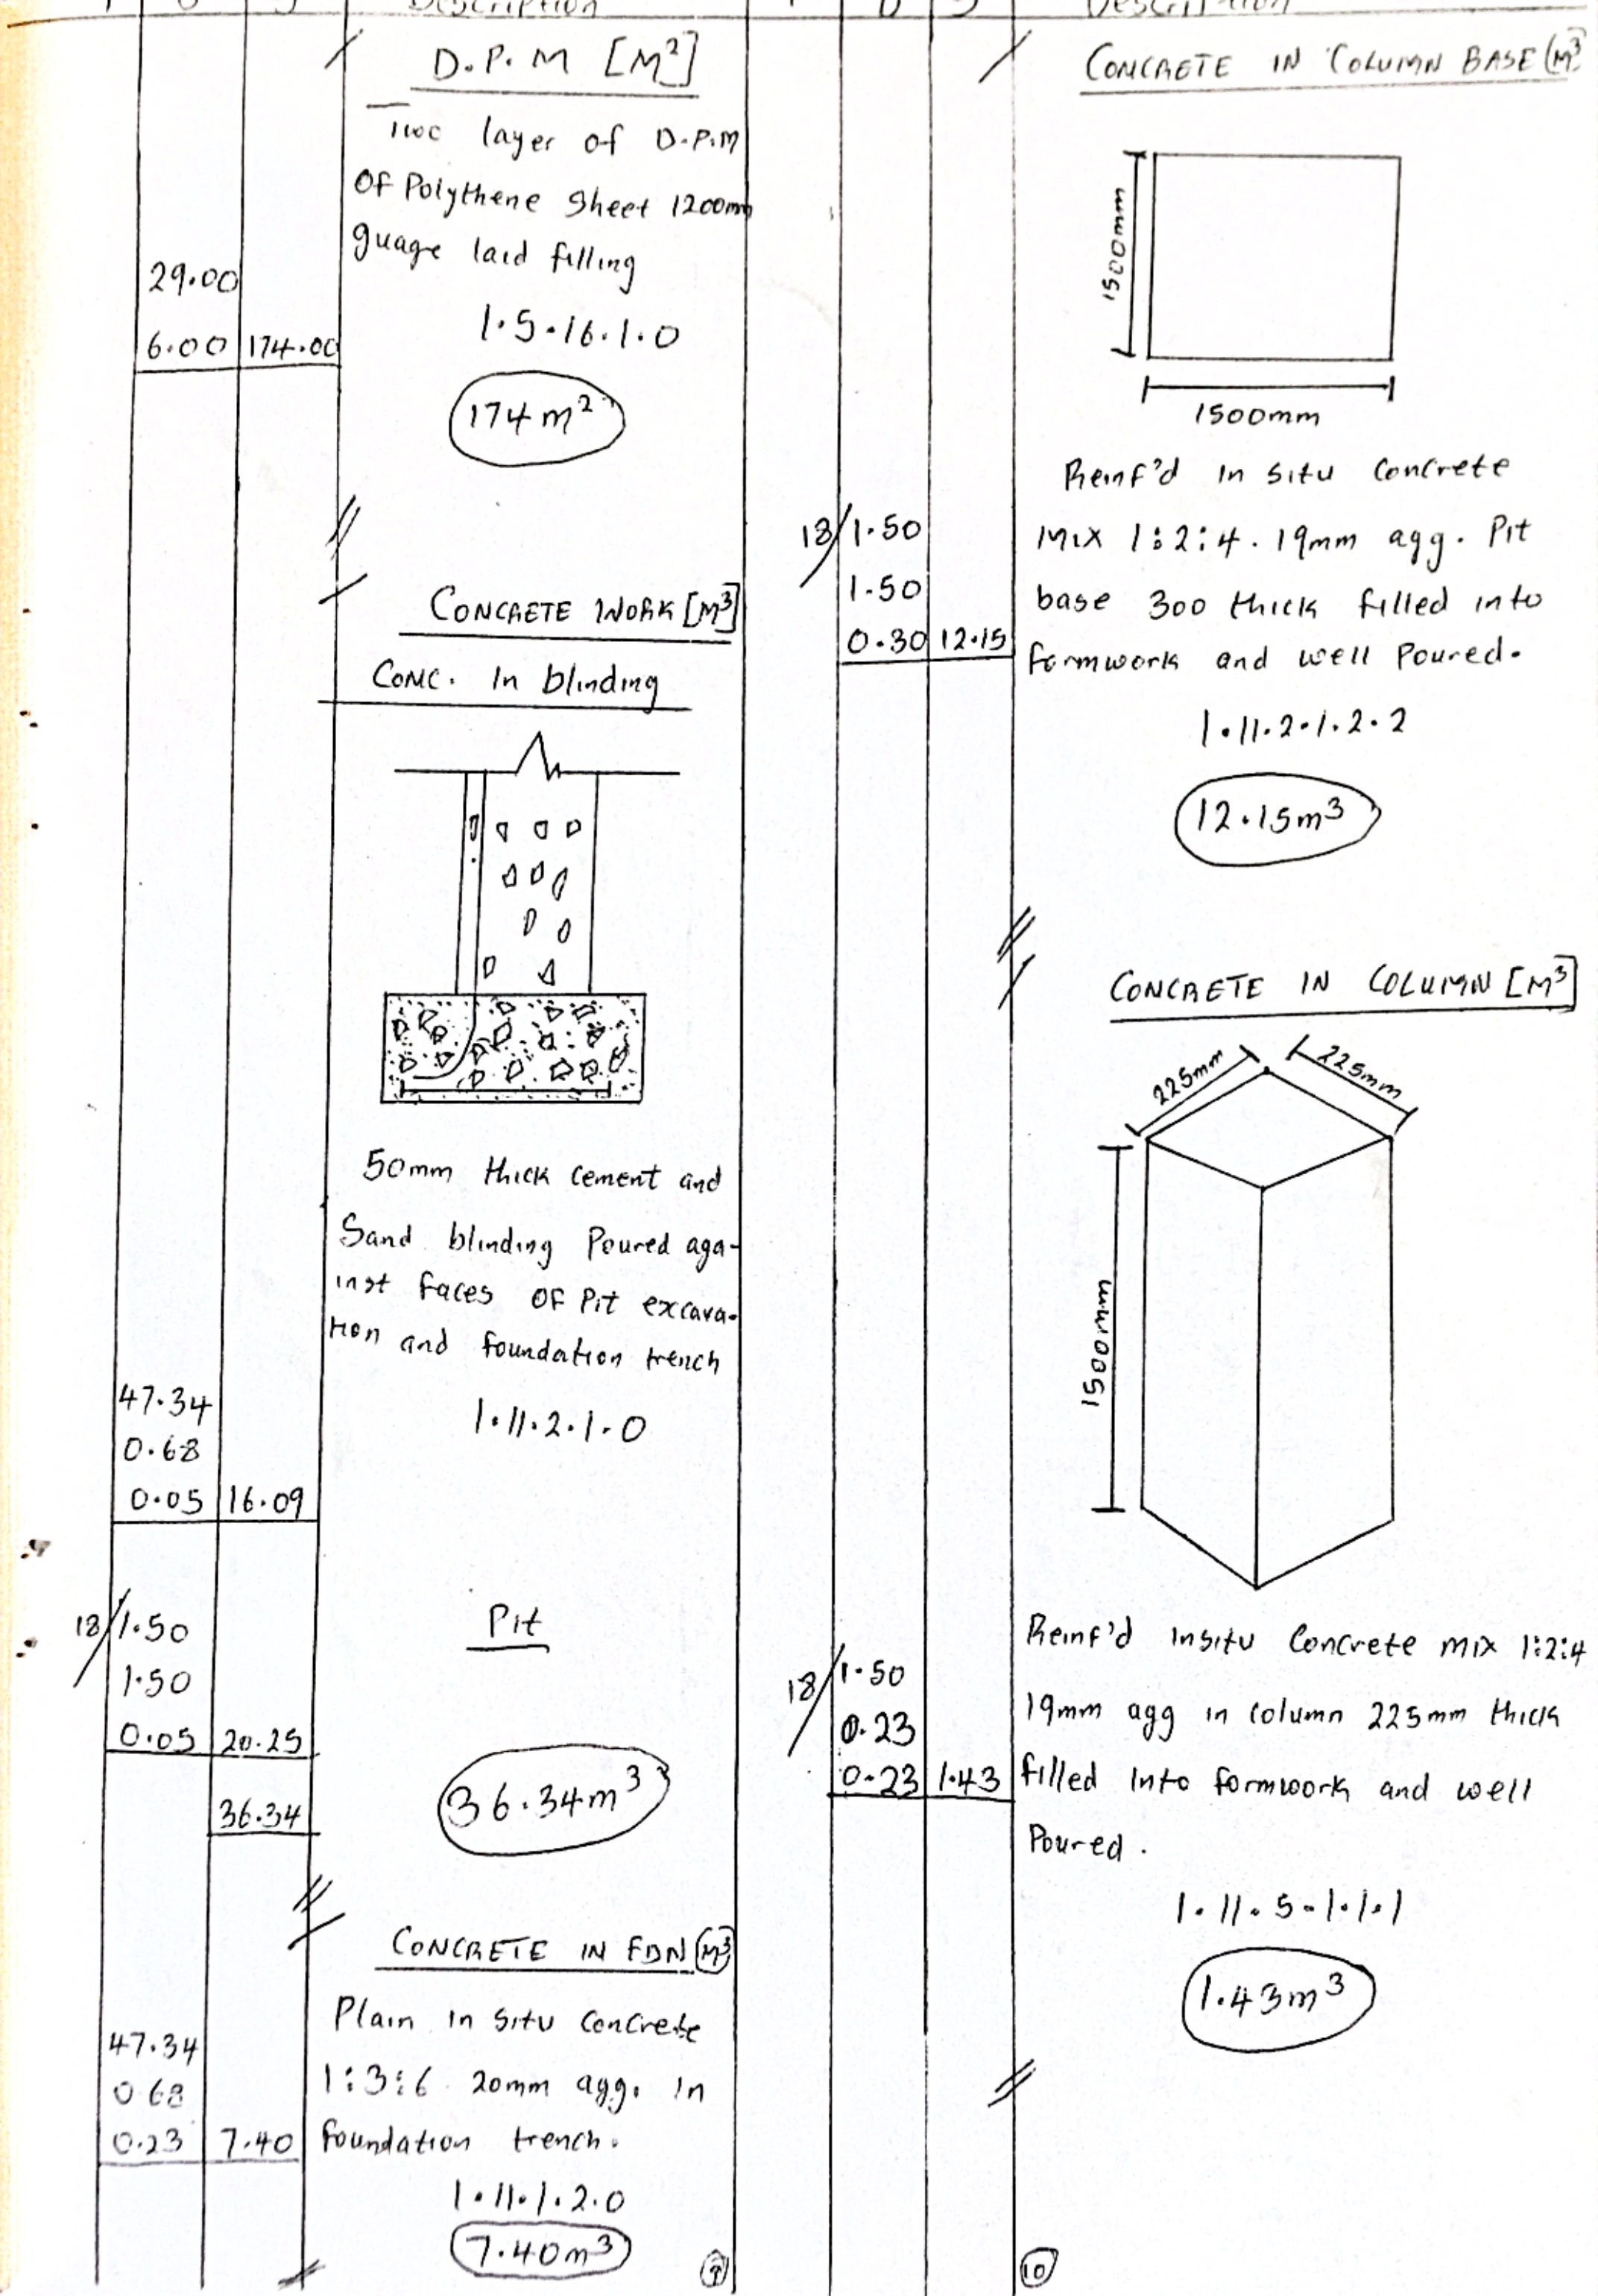 D.P.M [M²]
Two layer of D.P.M
Of Polythene Sheet 1200mm
guage laid filling
29.00
6.00 174.00
1.5.16.1.0
174m²
CONCRETE WORK [M³]
CONC. In blinding
50mm thick cement and
Sand blinding Poured aga-
inst faces OF Pit excava-
tion and foundation trench
47.34
0.68
0.05 16.09
1.11.2.1.0
Pit
18/1.50
1.50
0.05 20.25
36.34
36.34m³
CONCRETE IN FDN (M³)
Plain in situ concrete
1:3:6 20mm agg. in
foundation trench.
47.34
0.68
0.23 7.40
1.11.1.2.0
7.40m³
9
Description
CONCRETE IN COLUMN BASE (M³
1500mm
1500mm
Reinf'd In situ Concrete
Mix 1:2:4. 19mm agg. Pit
base 300 thick filled into
formwork and well Poured.
18/1.50
1.50
0.30 12.15
1.11.2.1.2.2
12.15m³
CONCRETE IN COLUMN [M³]
225mm
225mm
1500mm
Reinf'd Insitu Concrete mix 1:2:4
19mm agg in column 225mm thick
filled Into formwork and well
Poured.
18/1.50
0.23
0.23 1.43
1.11.5.1.1.1
1.43m³
10